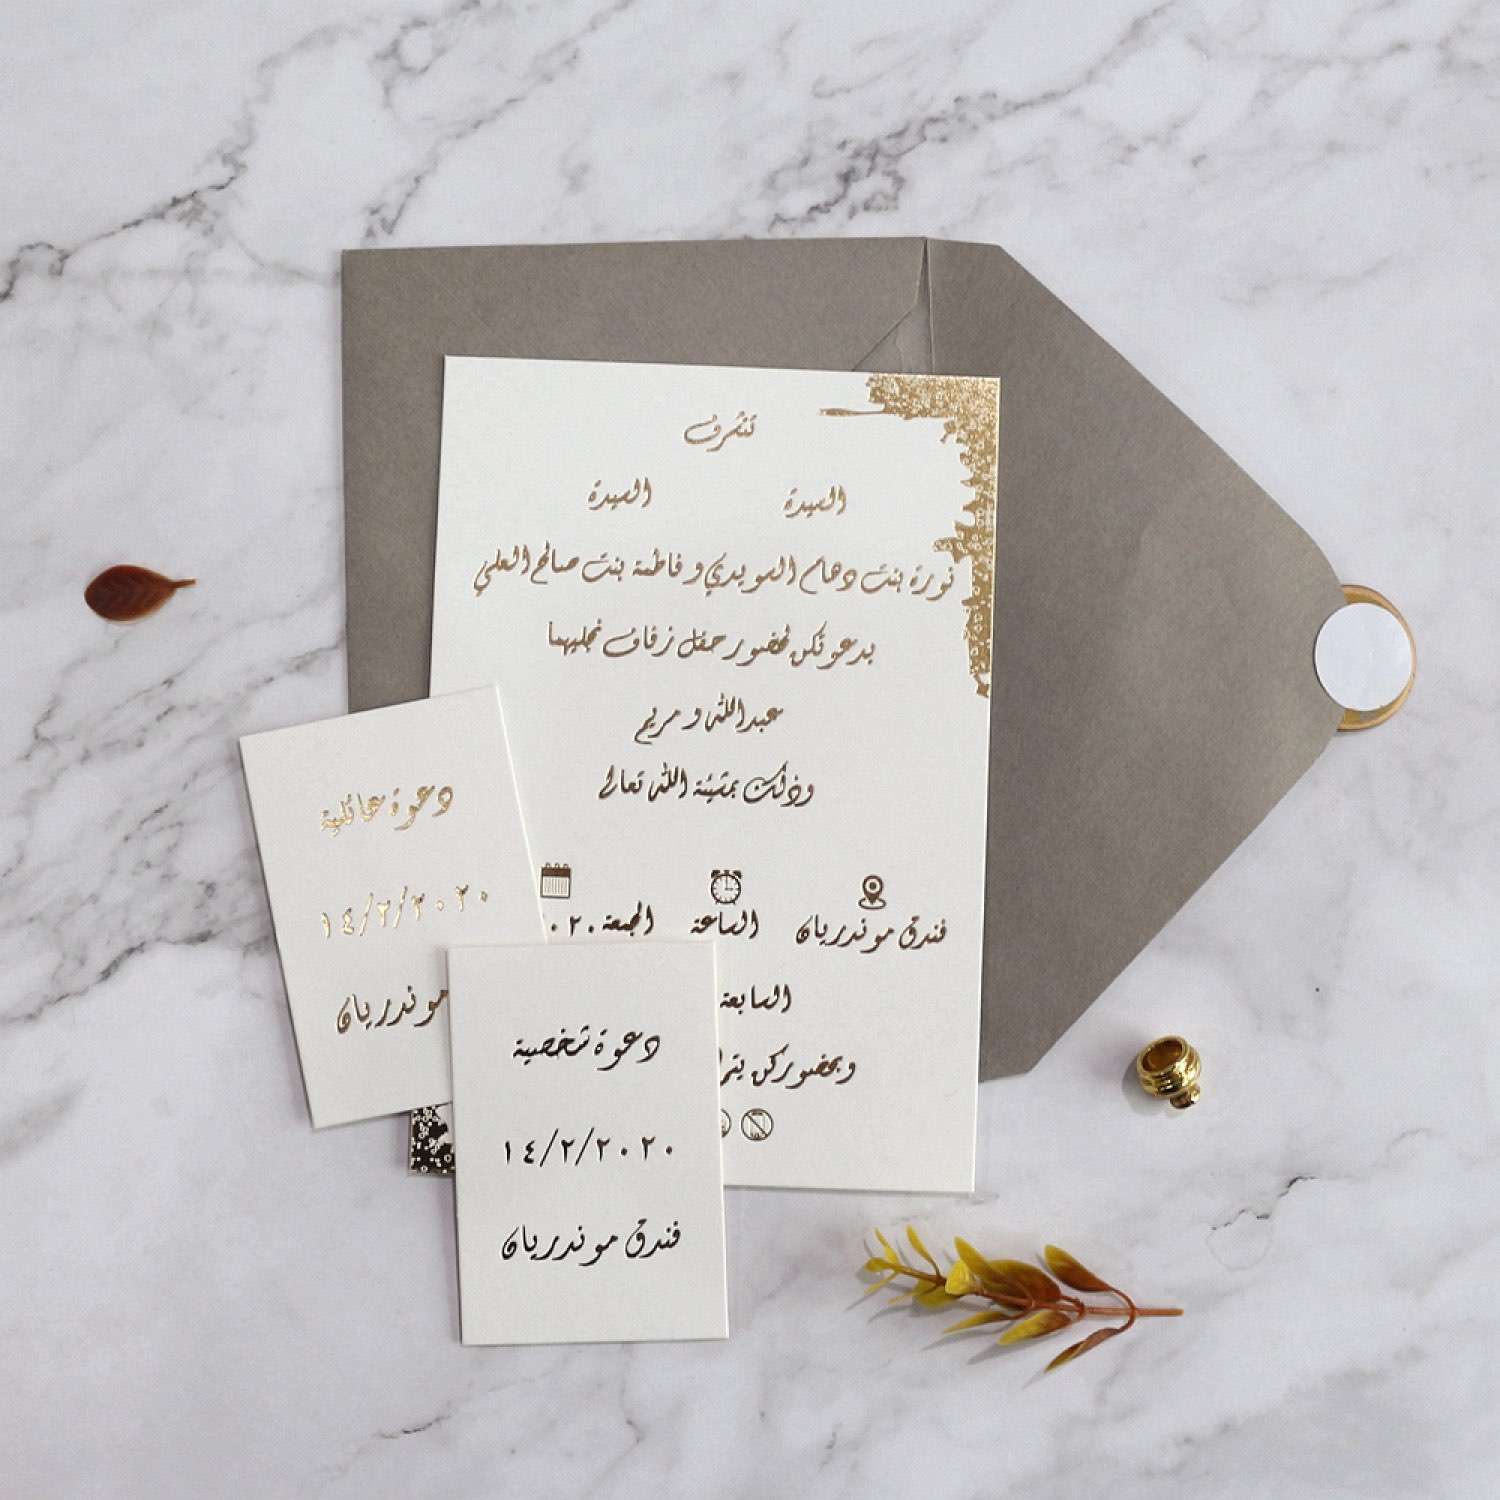 تتشرف
السيدة السيدة
نورة بنت دهام السويدي و فاطمة بنت صالح العلي
بدعوتكن لحضور حفل زفاف نجليهما
عبدالله و مريم
وذلك بمشيئة الله تعالى
فندق موندريان الساعة الجمعة
السابعة
وبحضوركن
دعوة عائلية
١٤/٢/٢٠٢٠
موندريان
دعوة شخصية
١٤/٢/٢٠٢٠
فندق موندريان